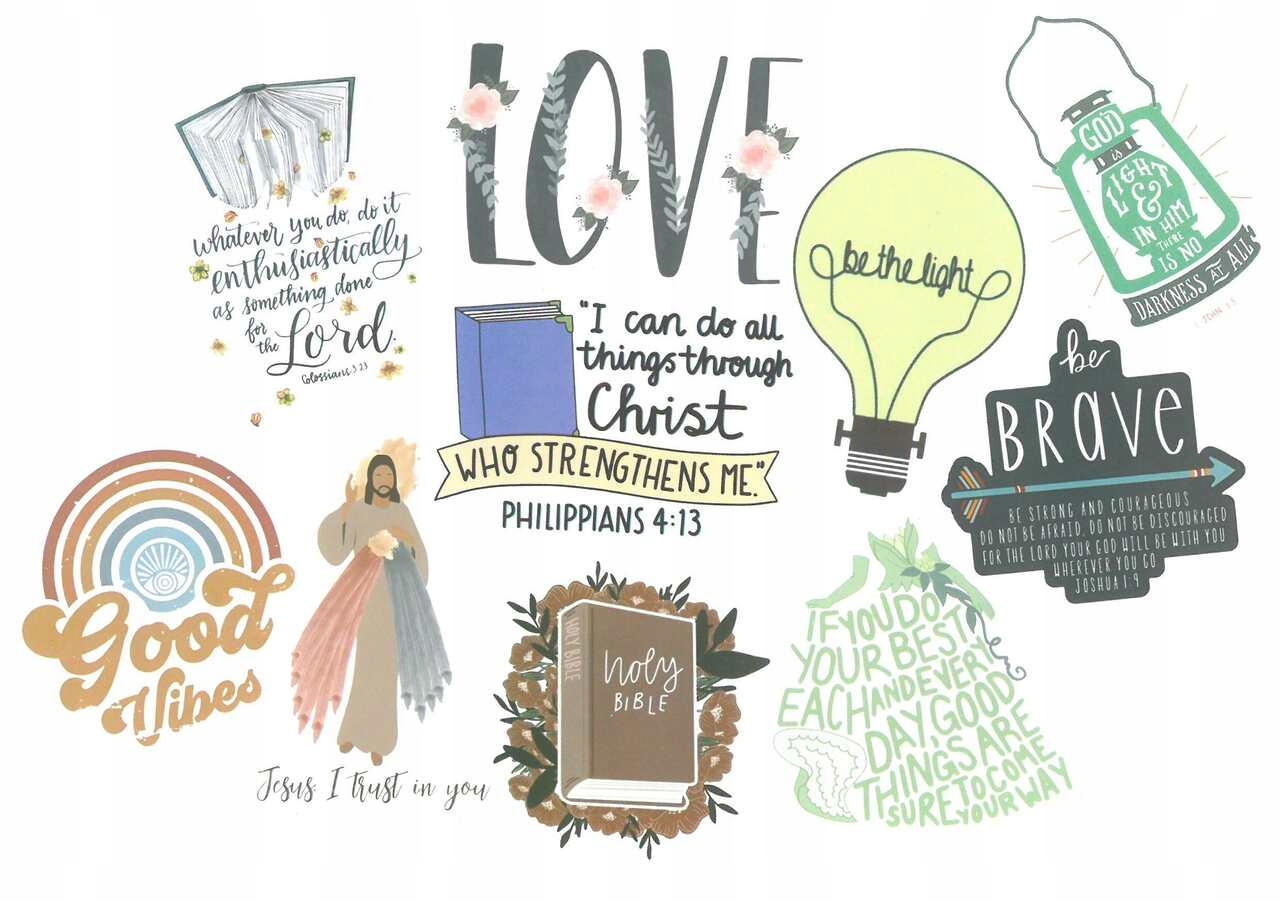 whatever you do, do it
enthusiastically
as something done
for
the Lord.
Colossians 3:23
LOVE
"I can do all
things through
Christ
WHO STRENGTHENS ME."
PHILIPPIANS 4:13
be the light
GOD
is
LIGHT
&
IN HIM
THERE
IS NO
DARKNESS AT ALL
1 JOHN 1:5
be
BRAVE
BE STRONG AND COURAGEOUS
DO NOT BE AFRAID, DO NOT BE DISCOURAGED
FOR THE LORD YOUR GOD WILL BE WITH YOU
WHEREVER YOU GO
JOSHUA 1:9
Good
Vibes
Jesus I trust in you
HOLY BIBLE
Holy
BIBLE
IF YOU DO
YOUR BEST
EACH AND EVERY
DAY, GOOD
THINGS ARE
SURE TO COME
YOUR WAY